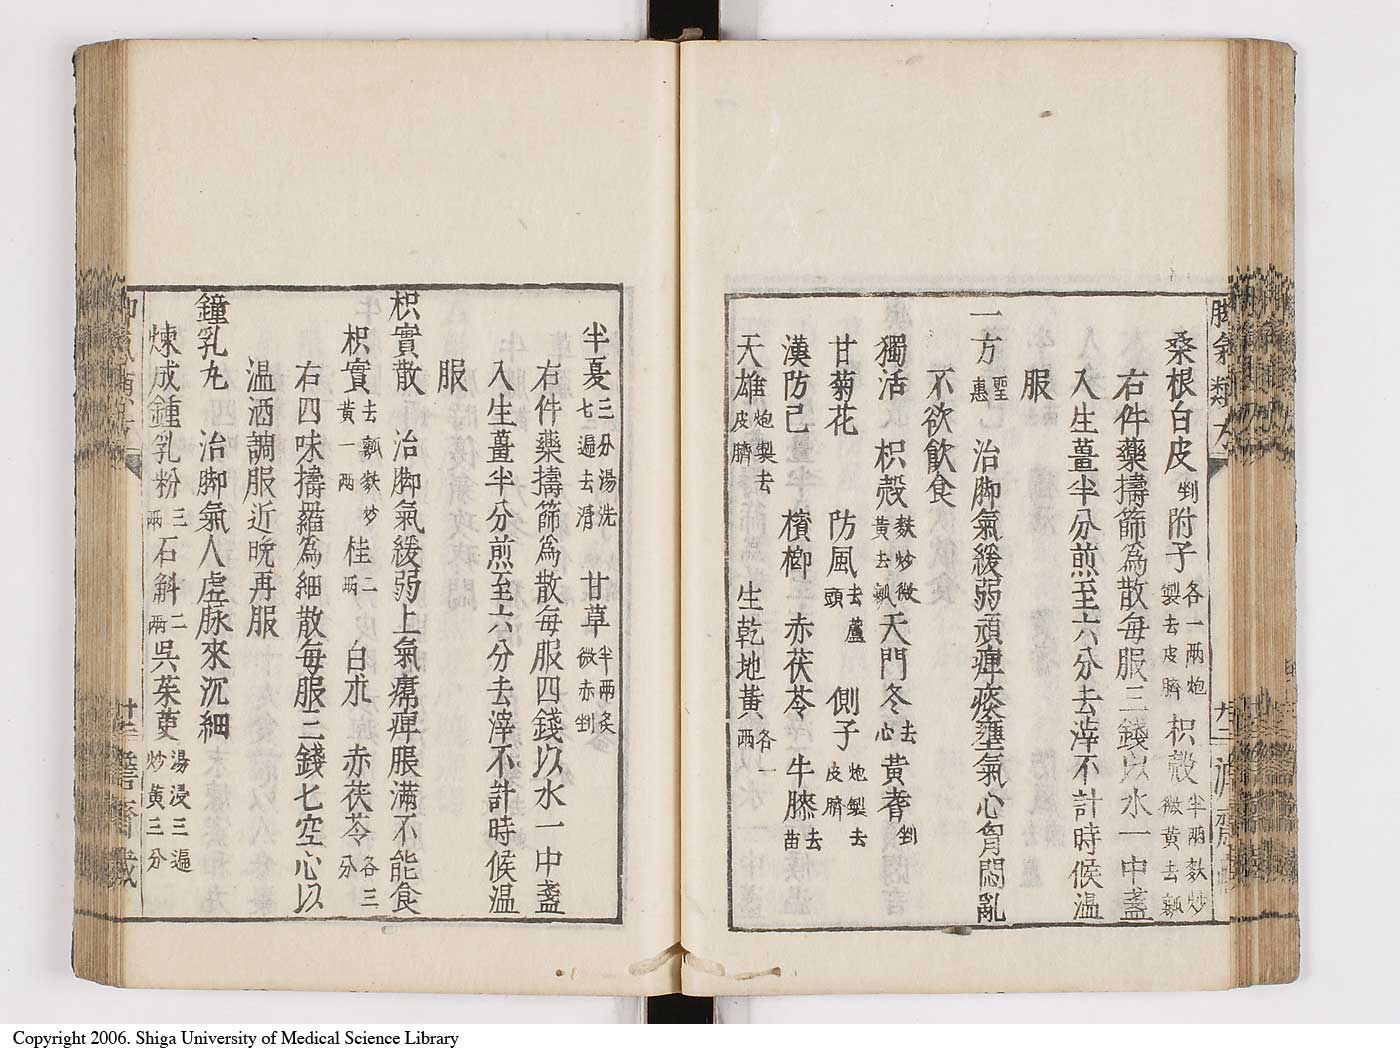 脚氣類方
桑根白皮剉附子各一兩炮製去皮臍枳殼半兩麩炒微黄去瓤
右件藥擣篩為散每服三錢以水一中盞
入生薑半分煎至六分去滓不計時候温
服
一方聖惠治脚氣緩弱頑痺痰壅氣心胷悶亂
不欲飲食
獨活枳殼麩炒微黄去瓤天門冬去心黄耆剉
甘菊花防風去蘆頭側子炮製去皮臍
漢防己檳榔赤茯苓牛膝去苗
天雄炮製去皮臍生乾地黄各一兩
半夏三分湯洗七遍去滑甘草半兩炙微赤剉
右件藥擣篩為散每服四錢以水一中盞
入生薑半分煎至六分去滓不計時候温
服
枳實散治脚氣緩弱上氣痛痺脹滿不能食
枳實去瓤麩炒黄一兩桂二兩白朮赤茯苓各三分
右四味擣羅為細散每服三錢匕空心以
温酒調服近晩再服
鐘乳丸治脚氣人虚脉來沉細
煉成鍾乳粉三兩石斛二兩呉茱萸湯浸三遍炒黄三分
Copyright 2006. Shiga University of Medical Science Library